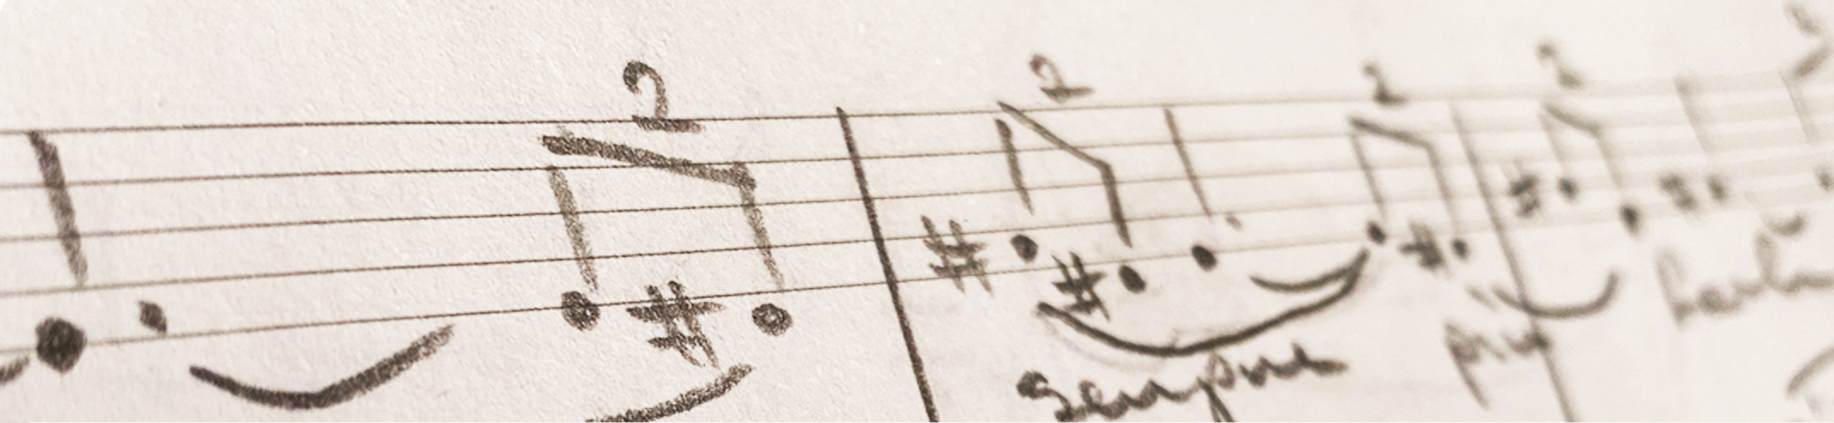 2 2 2 2
sempre più